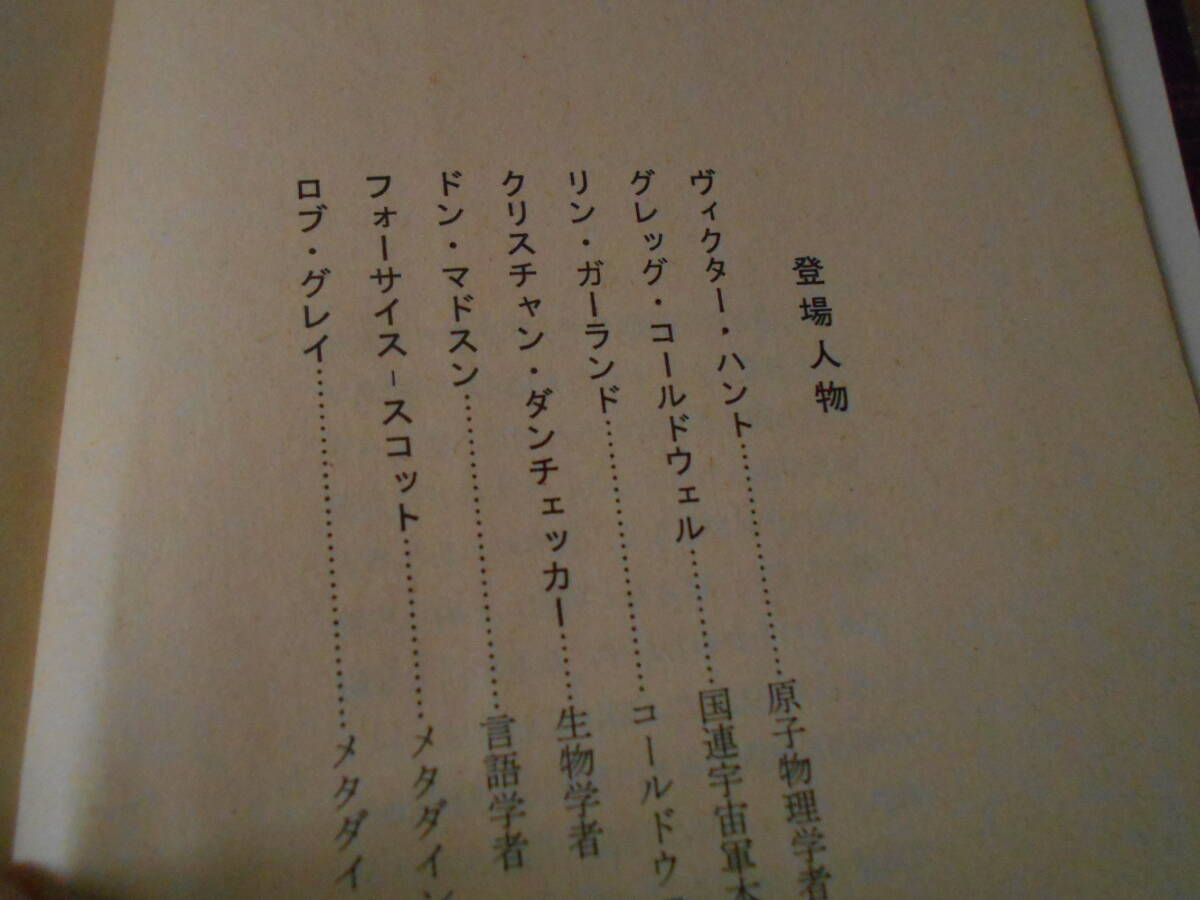 登場人物
ヴィクター・ハント……………………原子物理学者
グレッグ・コールドウェル…………国連宇宙軍本
リン・ガーランド………………………コールドウ
クリスチャン・ダンチェッカー……生物学者
ドン・マドスン…………………………言語学者
フォーサイス-スコット………………メタダイン
ロブ・グレイ……………………………メタダイ